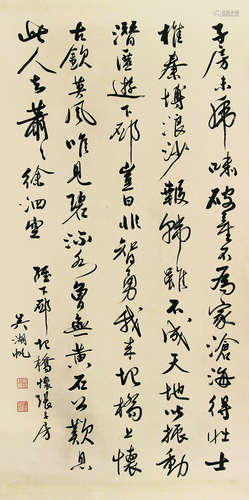 子房未虎嘯破產不為家滄海得壯士
椎秦博浪沙報韓雖不成天地皆振動
潛匿遊下邳豈曰非智勇我來圯橋上懷
古欽英風唯見碧流水曾無黃石公歎息
此人去蕭々徐泗空
經下邳圯橋懷張子房
吳湖帆